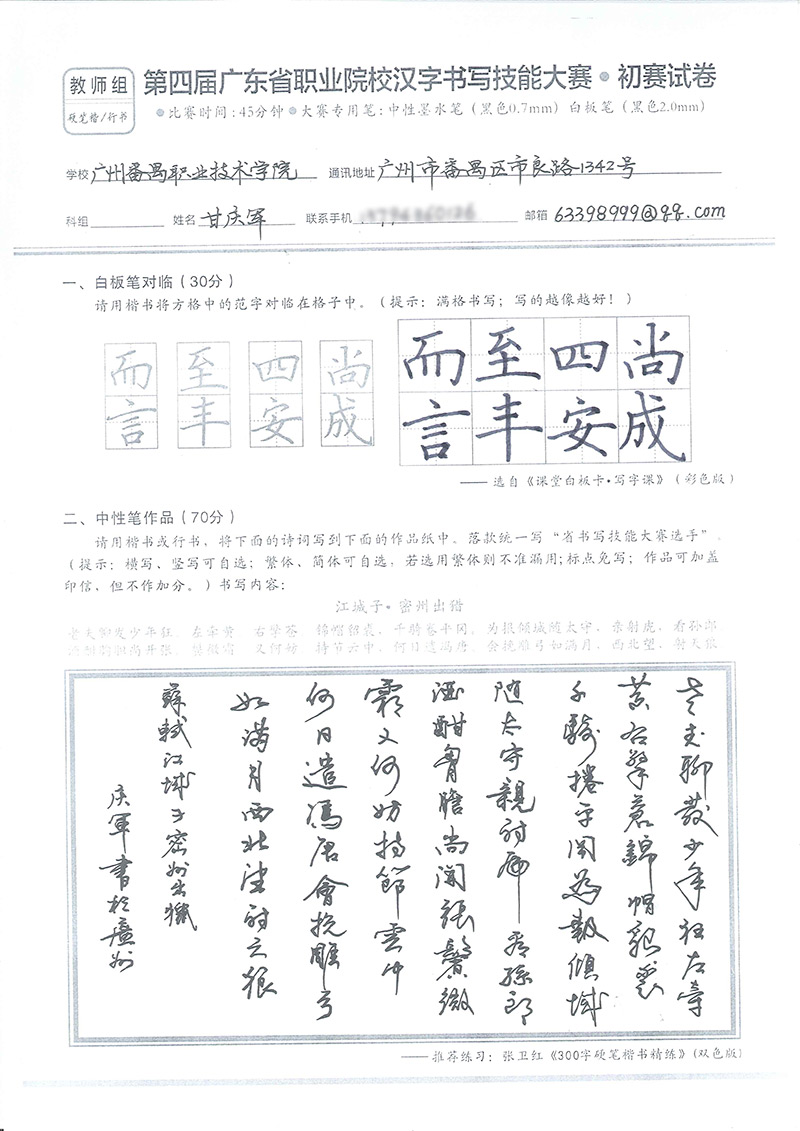 教师组
硬笔楷/行书
第四届广东省职业院校汉字书写技能大赛●初赛试卷
●比赛时间:45分钟●大赛专用笔:中性墨水笔（黑色0.7mm）白板笔（黑色2.0mm）
学校 广州番禺职业技术学院 通讯地址 广州市番禺区市良路1342号
科组 姓名 甘庆军 联系手机 邮箱 63398999@qq.com
一、白板笔对临（30分）
请用楷书将方格中的范字对临在格子中。（提示：满格书写；写的越像越好！）
而 至 四 尚
言 丰 安 成
而至四尚
言丰安成
——选自《课堂白板卡·写字课》（彩色版）
二、中性笔作品（70分）
请用楷书或行书，将下面的诗词写到下面的作品纸中。落款统一写“省书写技能大赛选手”。
（提示：横写、竖写可自选；繁体、简体可自选，若选用繁体则不准漏用;标点免写；作品可加盖
印信，但不作加分。）书写内容：
江城子·密州出猎
老夫聊发少年狂，左牵黄 右擎苍 锦帽貂裘，千骑卷平冈。为报倾城随太守，亲射虎，看孙郎
酒酣胸胆尚开张，鬓微霜 又何妨 持节云中，何日遣冯唐。会挽雕弓如满月，西北望，射天狼
老夫聊發少年狂左牽
黄右擎蒼錦帽貂裘
千騎捲平岡為報傾城
随太守親射虎看孫郎
酒酣胷膽尚開張鬢微
霜又何妨持節雲中
何日遣馮唐會挽雕弓
如满月西北望射天狼
蘇軾江城子密州出獵
庆軍書於廣州
——推荐练习：张卫红《300字硬笔楷书精练》(双色版)